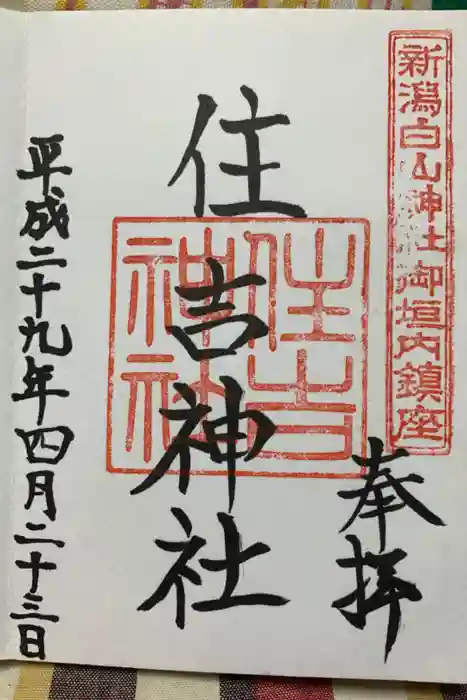 新潟白山神社御垣内鎮座
奉拝
住吉神社
住吉
神社
平成二十九年四月二十三日